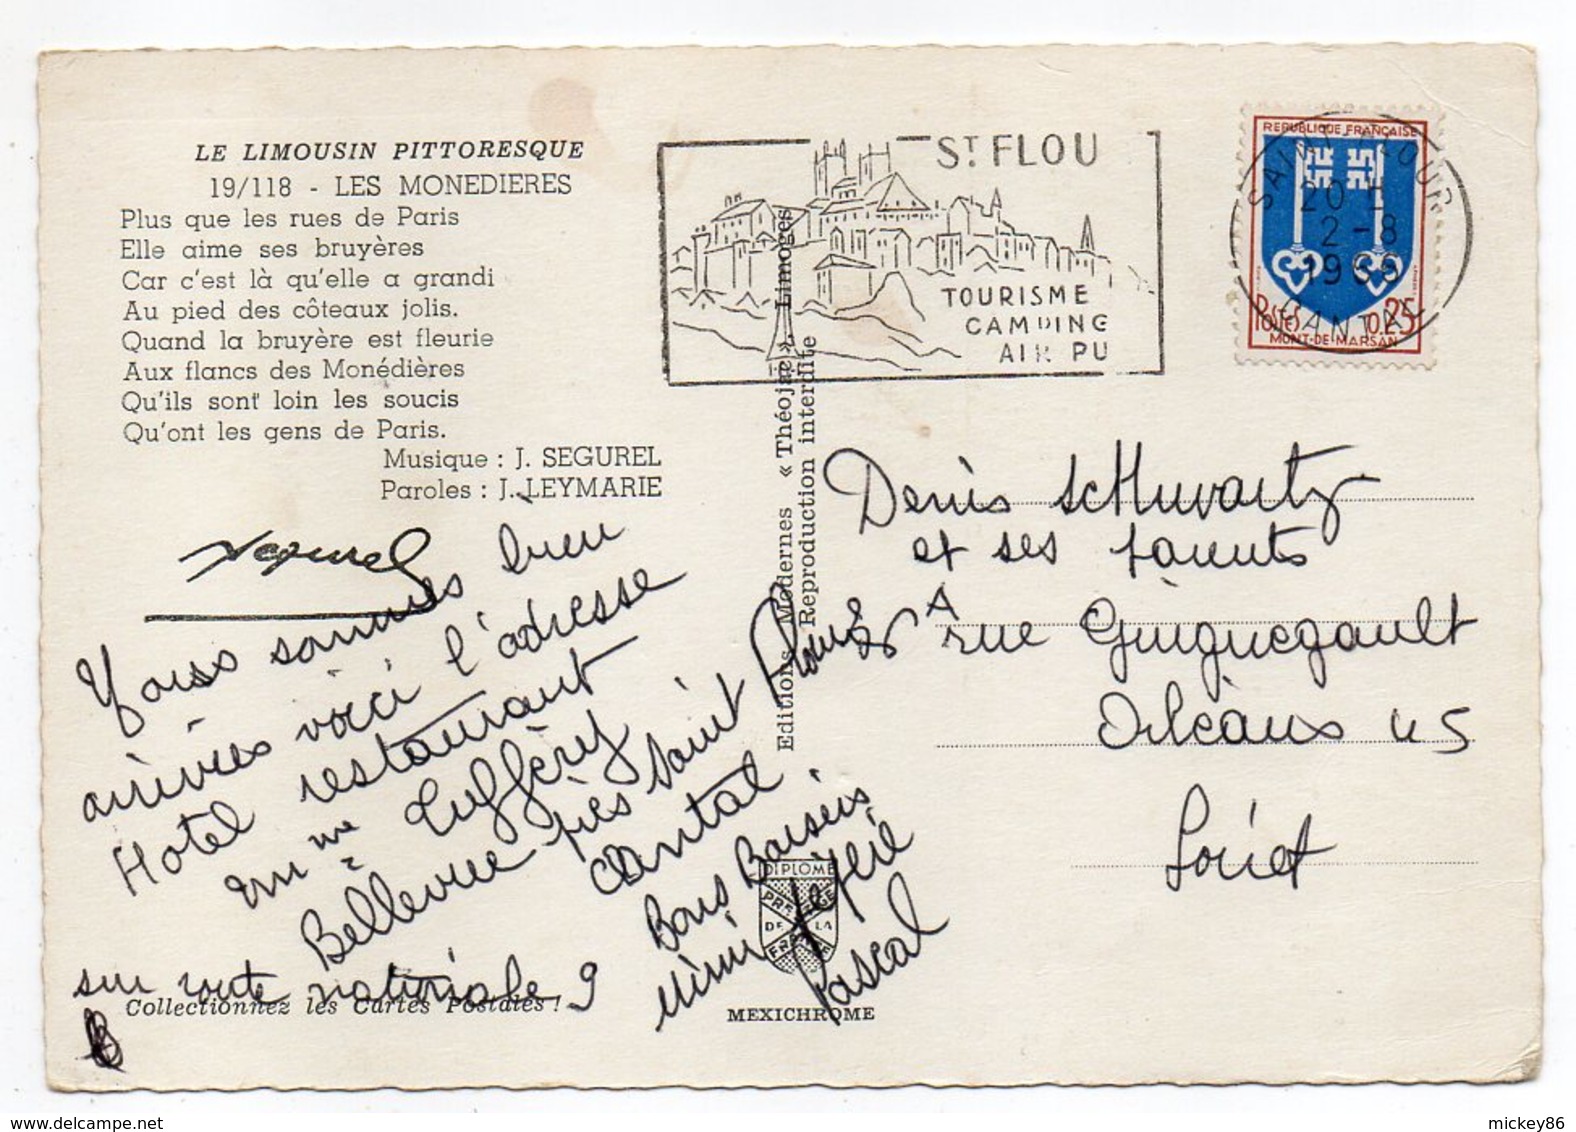 LE LIMOUSIN PITTORESQUE
19/118 - LES MONEDIERES
Plus que les rues de Paris
Elle aime ses bruyères
Car c'est là qu'elle a grandi
Au pied des côteaux jolis.
Quand la bruyère est fleurie
Aux flancs des Monédières
Qu'ils sont loin les soucis
Qu'ont les gens de Paris.
Musique : J. SEGUREL
Paroles : J. LEYMARIE
Segurel
Nous sommes bien
arrivées voici l'adresse
Hotel restaurant
Bellevue près Saint Flour
Cantal
sur route nationale 9
Bons Baisers
Mimi
Pascal
Collectionnez les Cartes Postales !
Editions Modernes « Théojac », Limoges
Reproduction interdite
DIPLOME
PRESTIGE
DE LA
FRANCE
MEXICHROME
ST FLOU
TOURISME
CAMPING
AIR PU
REPUBLIQUE FRANÇAISE
POSTES 0.25
MONT-DE-MARSAN
SAINT FLOUR
2 -8
CANTAL
Denis Schwartz
et ses parents
rue Guiguegault
Orléans 45
Loiret
mickey86